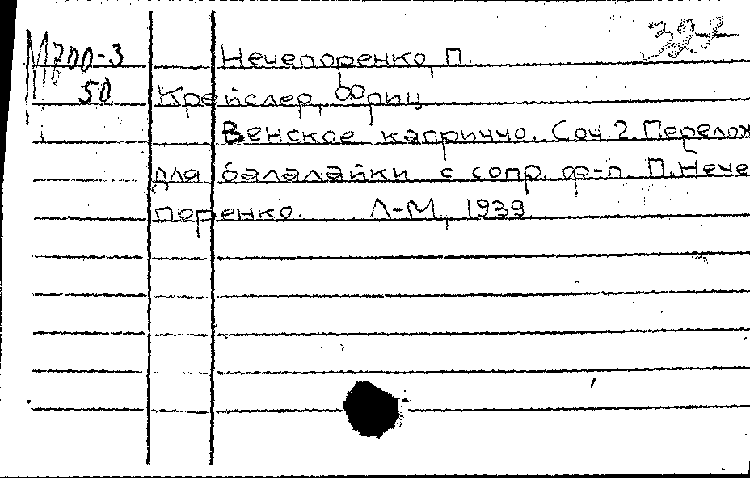 М700-3 Нечепоренко, П.
50 Крейслер, Фриц
Венское каприччо. Соч 2. Перелож
для балалайки с сопр. ф-п. П. Нече
поренко. Л-М, 1939